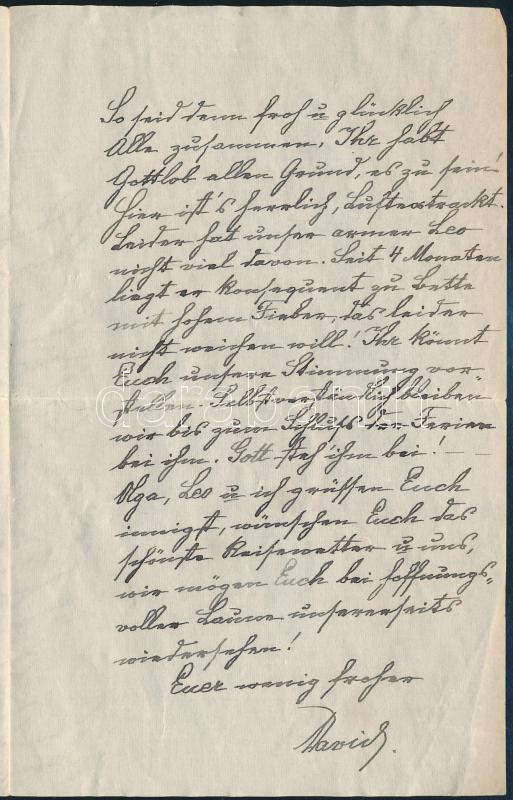 So seid denn froh u glücklich
Alle zusammen. Ihr habt
Gottlob allen Grund, es zu sein!
Hier ist's herrlich, Luftextrackt.
Leider hat unser armer Leo
nicht viel davon. Seit 4 Monaten
liegt er konsequent zu Bette
mit hohem Fieber, das leider
nicht weichen will! Ihr könnt
Euch unsere Stimmung vor-
stellen. Selbstverständlich bleiben
wir bis zum Schluss der Ferien
bei ihm. Gott steh' ihm bei! —
Olga, Leo u ich grüssen Euch
innigst, wünschen Euch das
schönste Reisewetter u uns,
wir mögen Euch bei hoffnungs-
voller Laune unsererseits
wiedersehen!
Euer wenig froher
David.